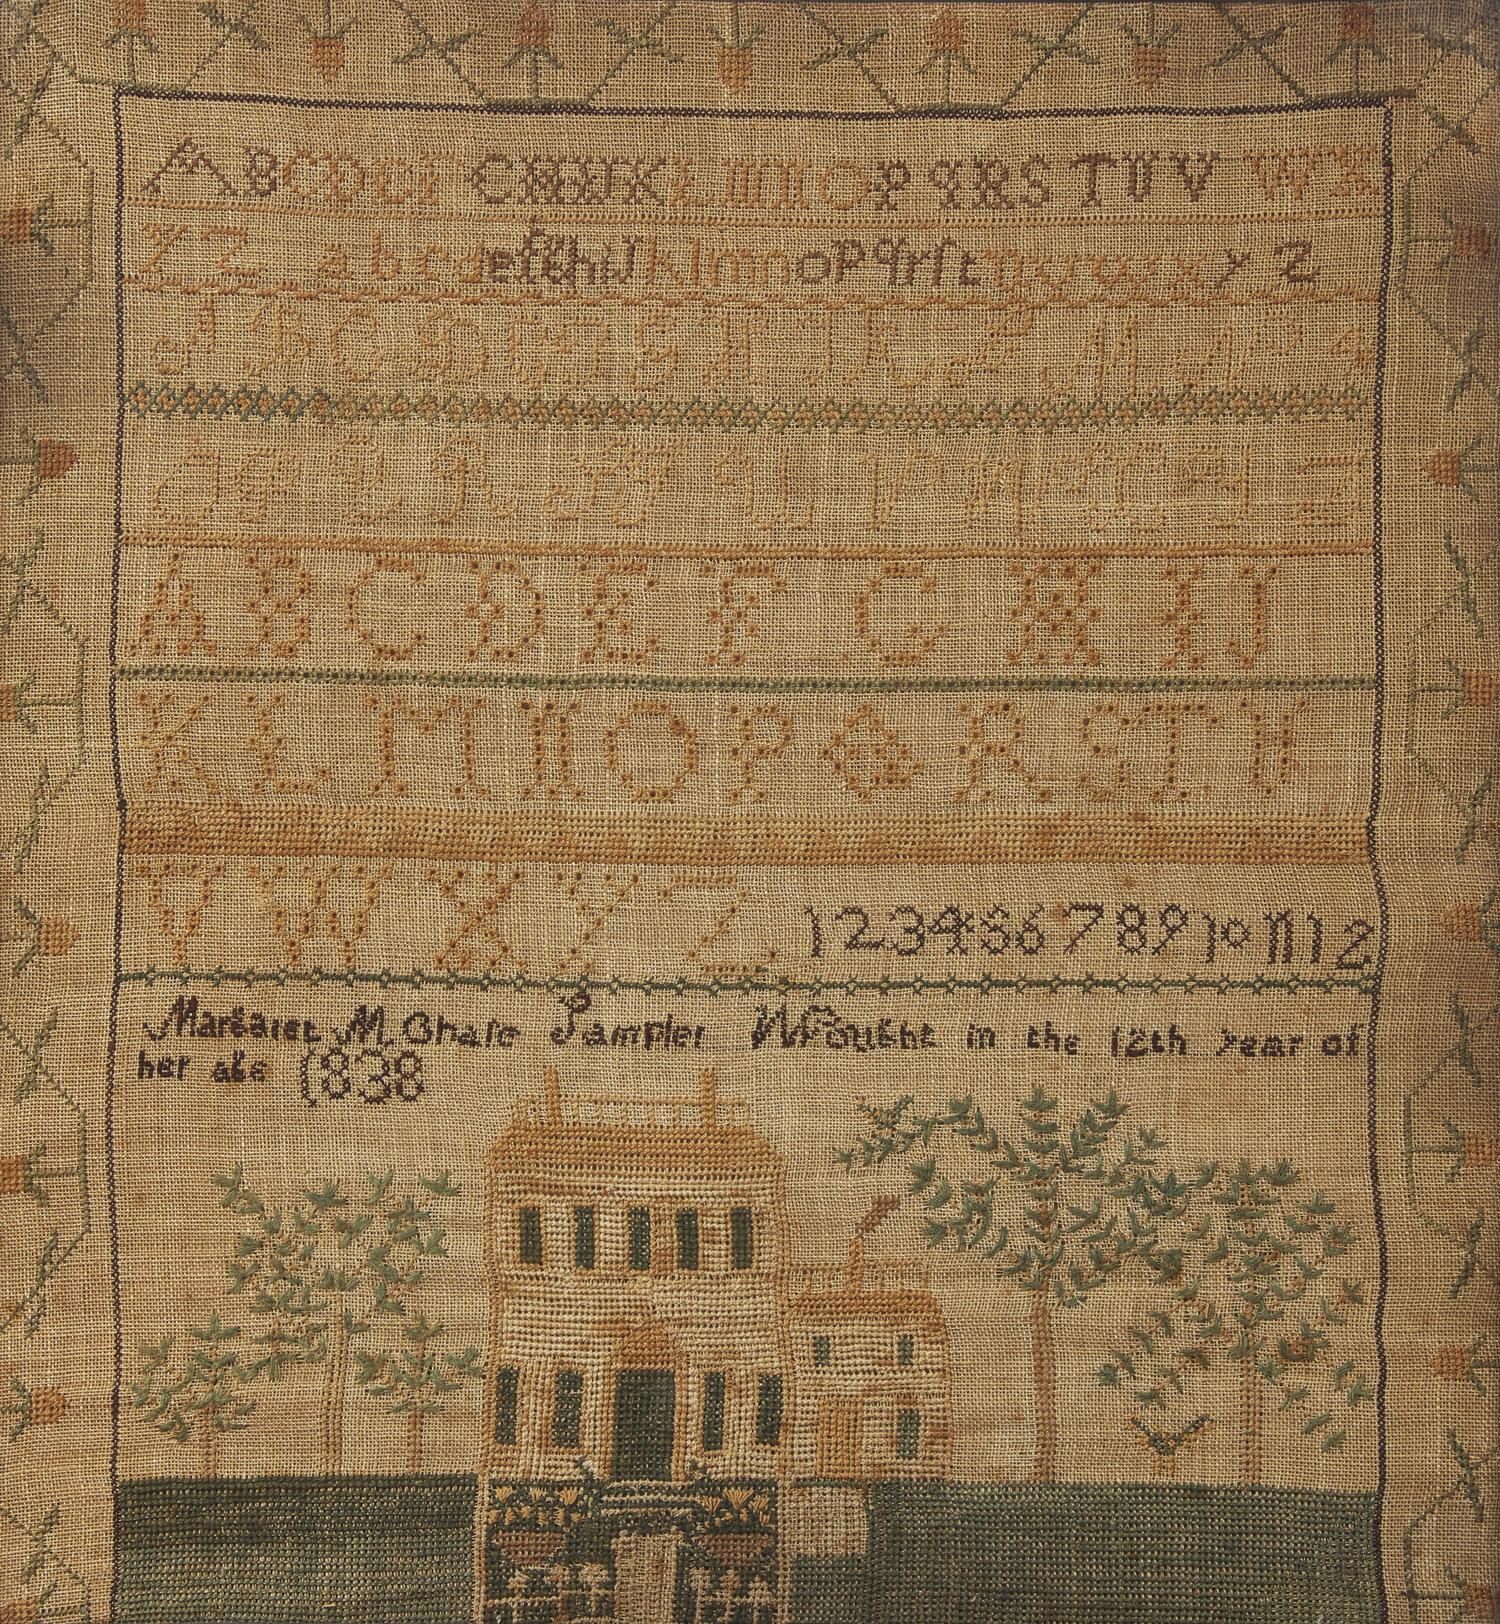 ABCDEF GHIJKLMNOPQRSTUV WX
YZ abcdefghijklmnopqrſtuvwxyz
A B C D E F G H I K L M N O
P Q R S T U V W X Y Z
A B C D E F G H I J
K L M N O P Q R S T U
V W X Y Z. 1 2 3 4 5 6 7 8 9 10 11 12
Margaret M. Ghaie Sampler Wrought in the 12th year of
her age 1838